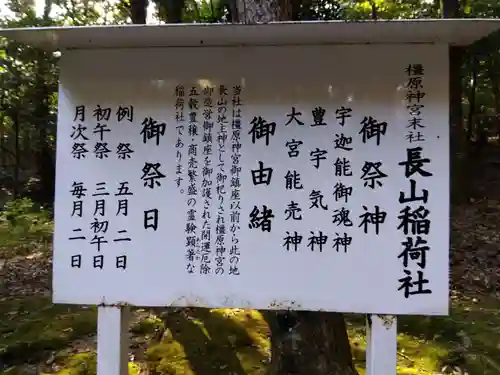 橿原神宮末社
長山稲荷社
御祭神
宇迦能御魂神
豊宇気神
大宮能売神
御由緒
当社は橿原神宮御鎮座以前から此の地
長山の地主神として御祀され橿原神宮の
御造営御鎮座を御加護された開運厄除
五穀豊穣・商売繁盛の霊験顕著な
稲荷社であります。
御祭日
例祭 五月二日
初午祭 三月初午
月次祭 毎月二日